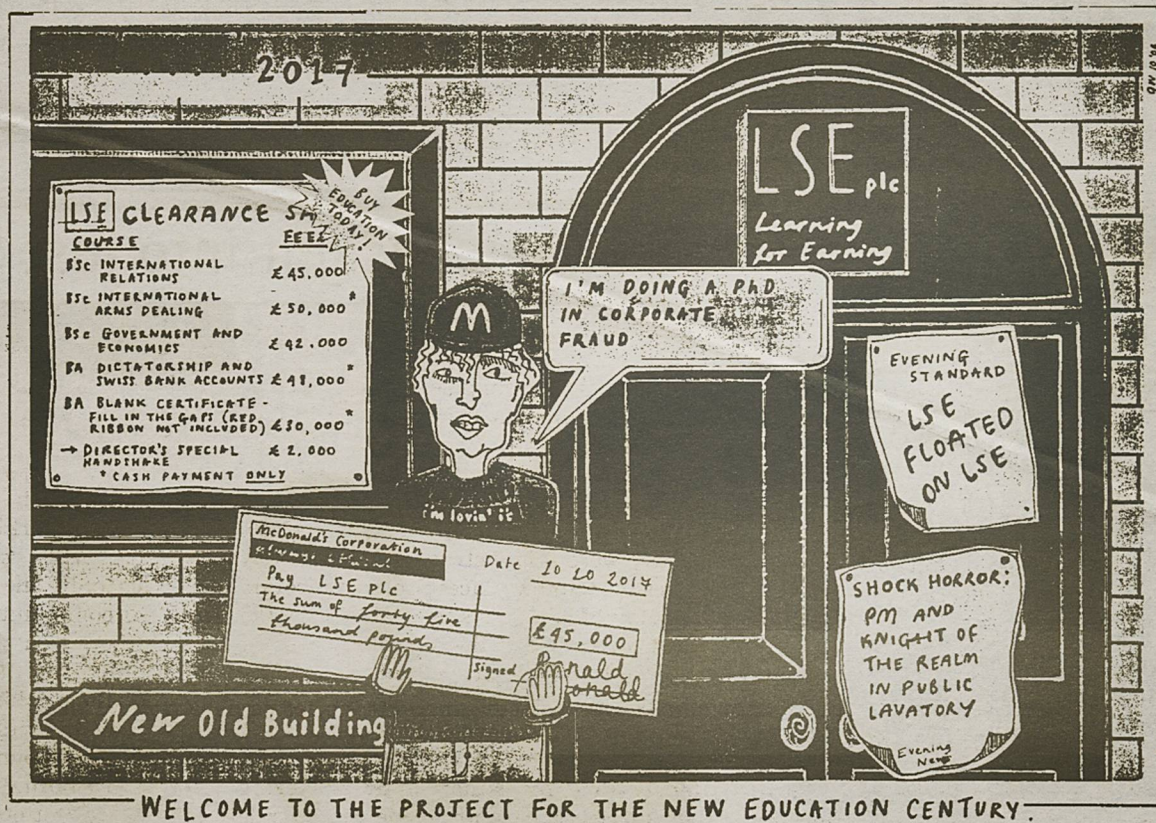 2017
LSE CLEARANCE
BUY
EDUCATION
TODAY!
COURSE
BSc INTERNATIONAL
RELATIONS £45,000
BSc INTERNATIONAL
ARMS DEALING £50,000*
BSc GOVERNMENT AND
ECONOMICS £42,000
BA DICTATORSHIP AND
SWISS BANK ACCOUNTS £48,000*
BA BLANK CERTIFICATE -
FILL IN THE GAPS (RED
RIBBON NOT INCLUDED) £30,000*
→ DIRECTOR'S SPECIAL £2,000
HANDSHAKE
* CASH PAYMENT ONLY
M
i'm lovin' it
I'M DOING A PhD
IN CORPORATE
FRAUD
LSE plc
Learning
for Earning
EVENING
STANDARD
LSE
FLOATED
ON LSE
SHOCK HORROR:
PM AND
KNIGHT OF
THE REALM
IN PUBLIC
LAVATORY
Evening
News
McDonald's Corporation
Date 10 10 2017
Pay LSE plc
The sum of forty five
thousand pounds
£45,000
signed Ronald
New Old Building
WELCOME TO THE PROJECT FOR THE NEW EDUCATION CENTURY.